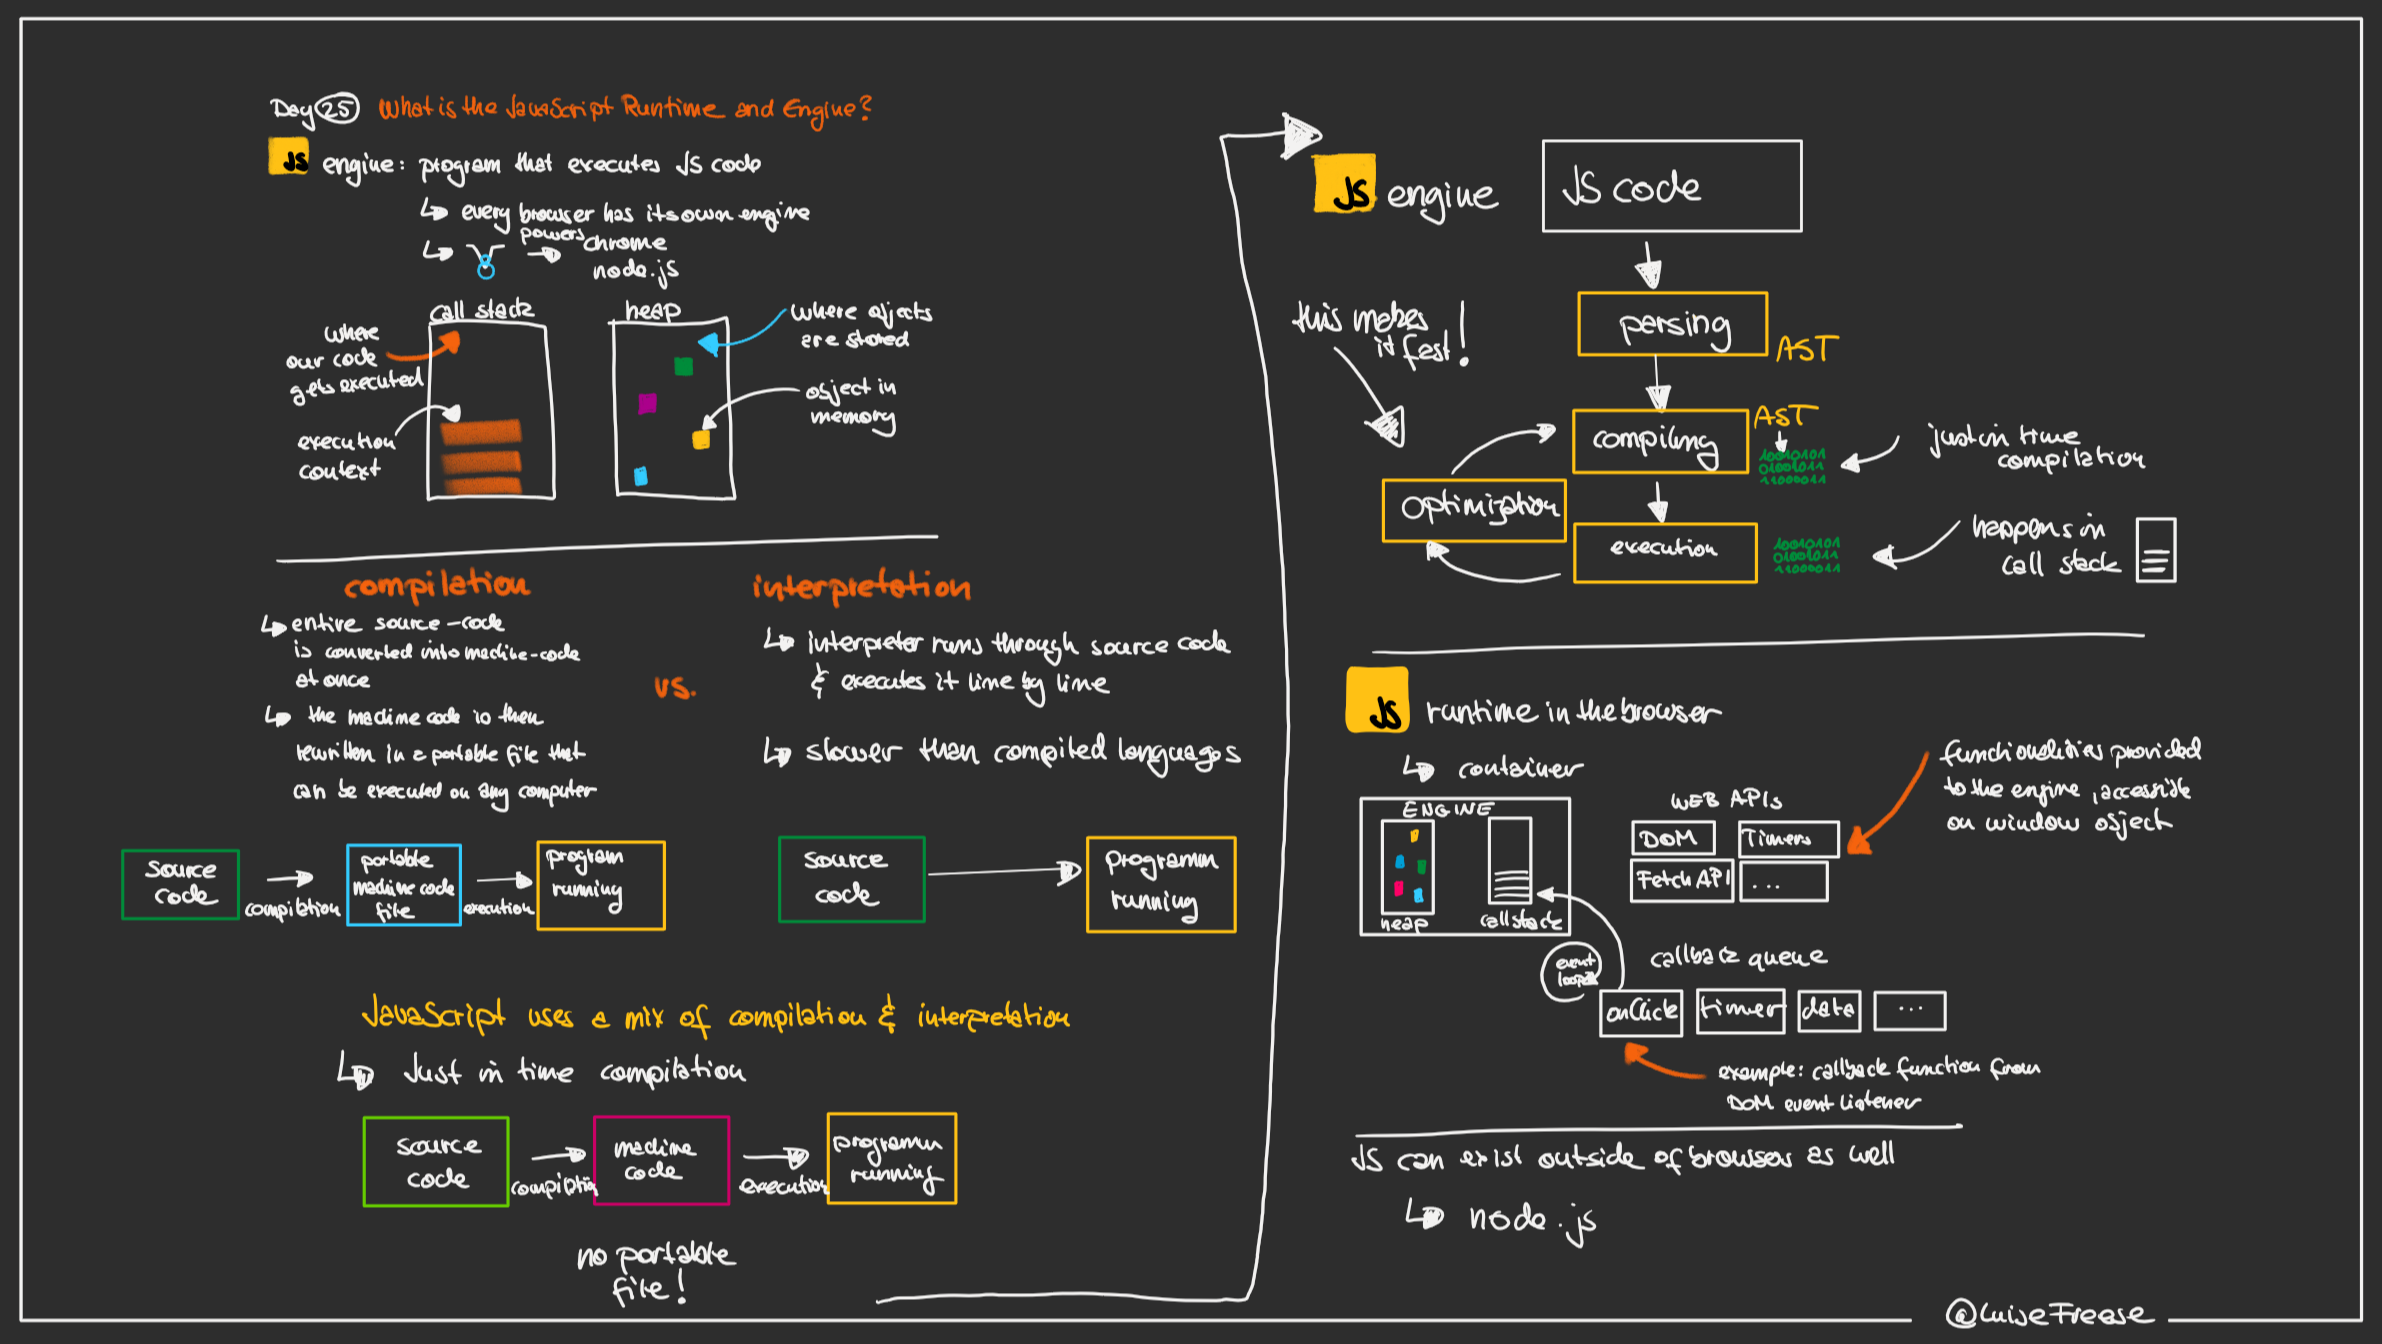 Day 25 What is the JavaScript Runtime and Engine?
JS engine: program that executes JS code
every browser has its own engine
powers chrome
node.js
call stack
where
our code
gets executed
execution
context
heap
where objects
are stored
object in
memory
compilation
entire source-code
is converted into machine-code
at once
the machine code is then
rewritten in a portable file that
can be executed on any computer
vs.
interpretation
interpreter runs through source code
& executes it line by line
slower than compiled languages
source
code
compilation
portable
machine code
file
execution
program
running
source
code
programm
running
JavaScript uses a mix of compilation & interpretation
Just in time compilation
source
code
compilation
machine
code
execution
programm
running
no portable
file!
JS engine
JS code
this makes
it fast!
parsing
AST
compiling
AST
10010101
01001011
11000011
just in time
compilation
optimization
execution
10010101
01001011
11000011
happens in
call stack
JS runtime in the browser
container
ENGINE
heap
callstack
WEB APIs
DOM
Timers
Fetch API
...
functionalities provided
to the engine, accessible
on window object
event
loop
callback queue
onClick
timer
data
...
example: callback function from
DOM event listener
JS can exist outside of browsers as well
node.js
@LuiseFreese